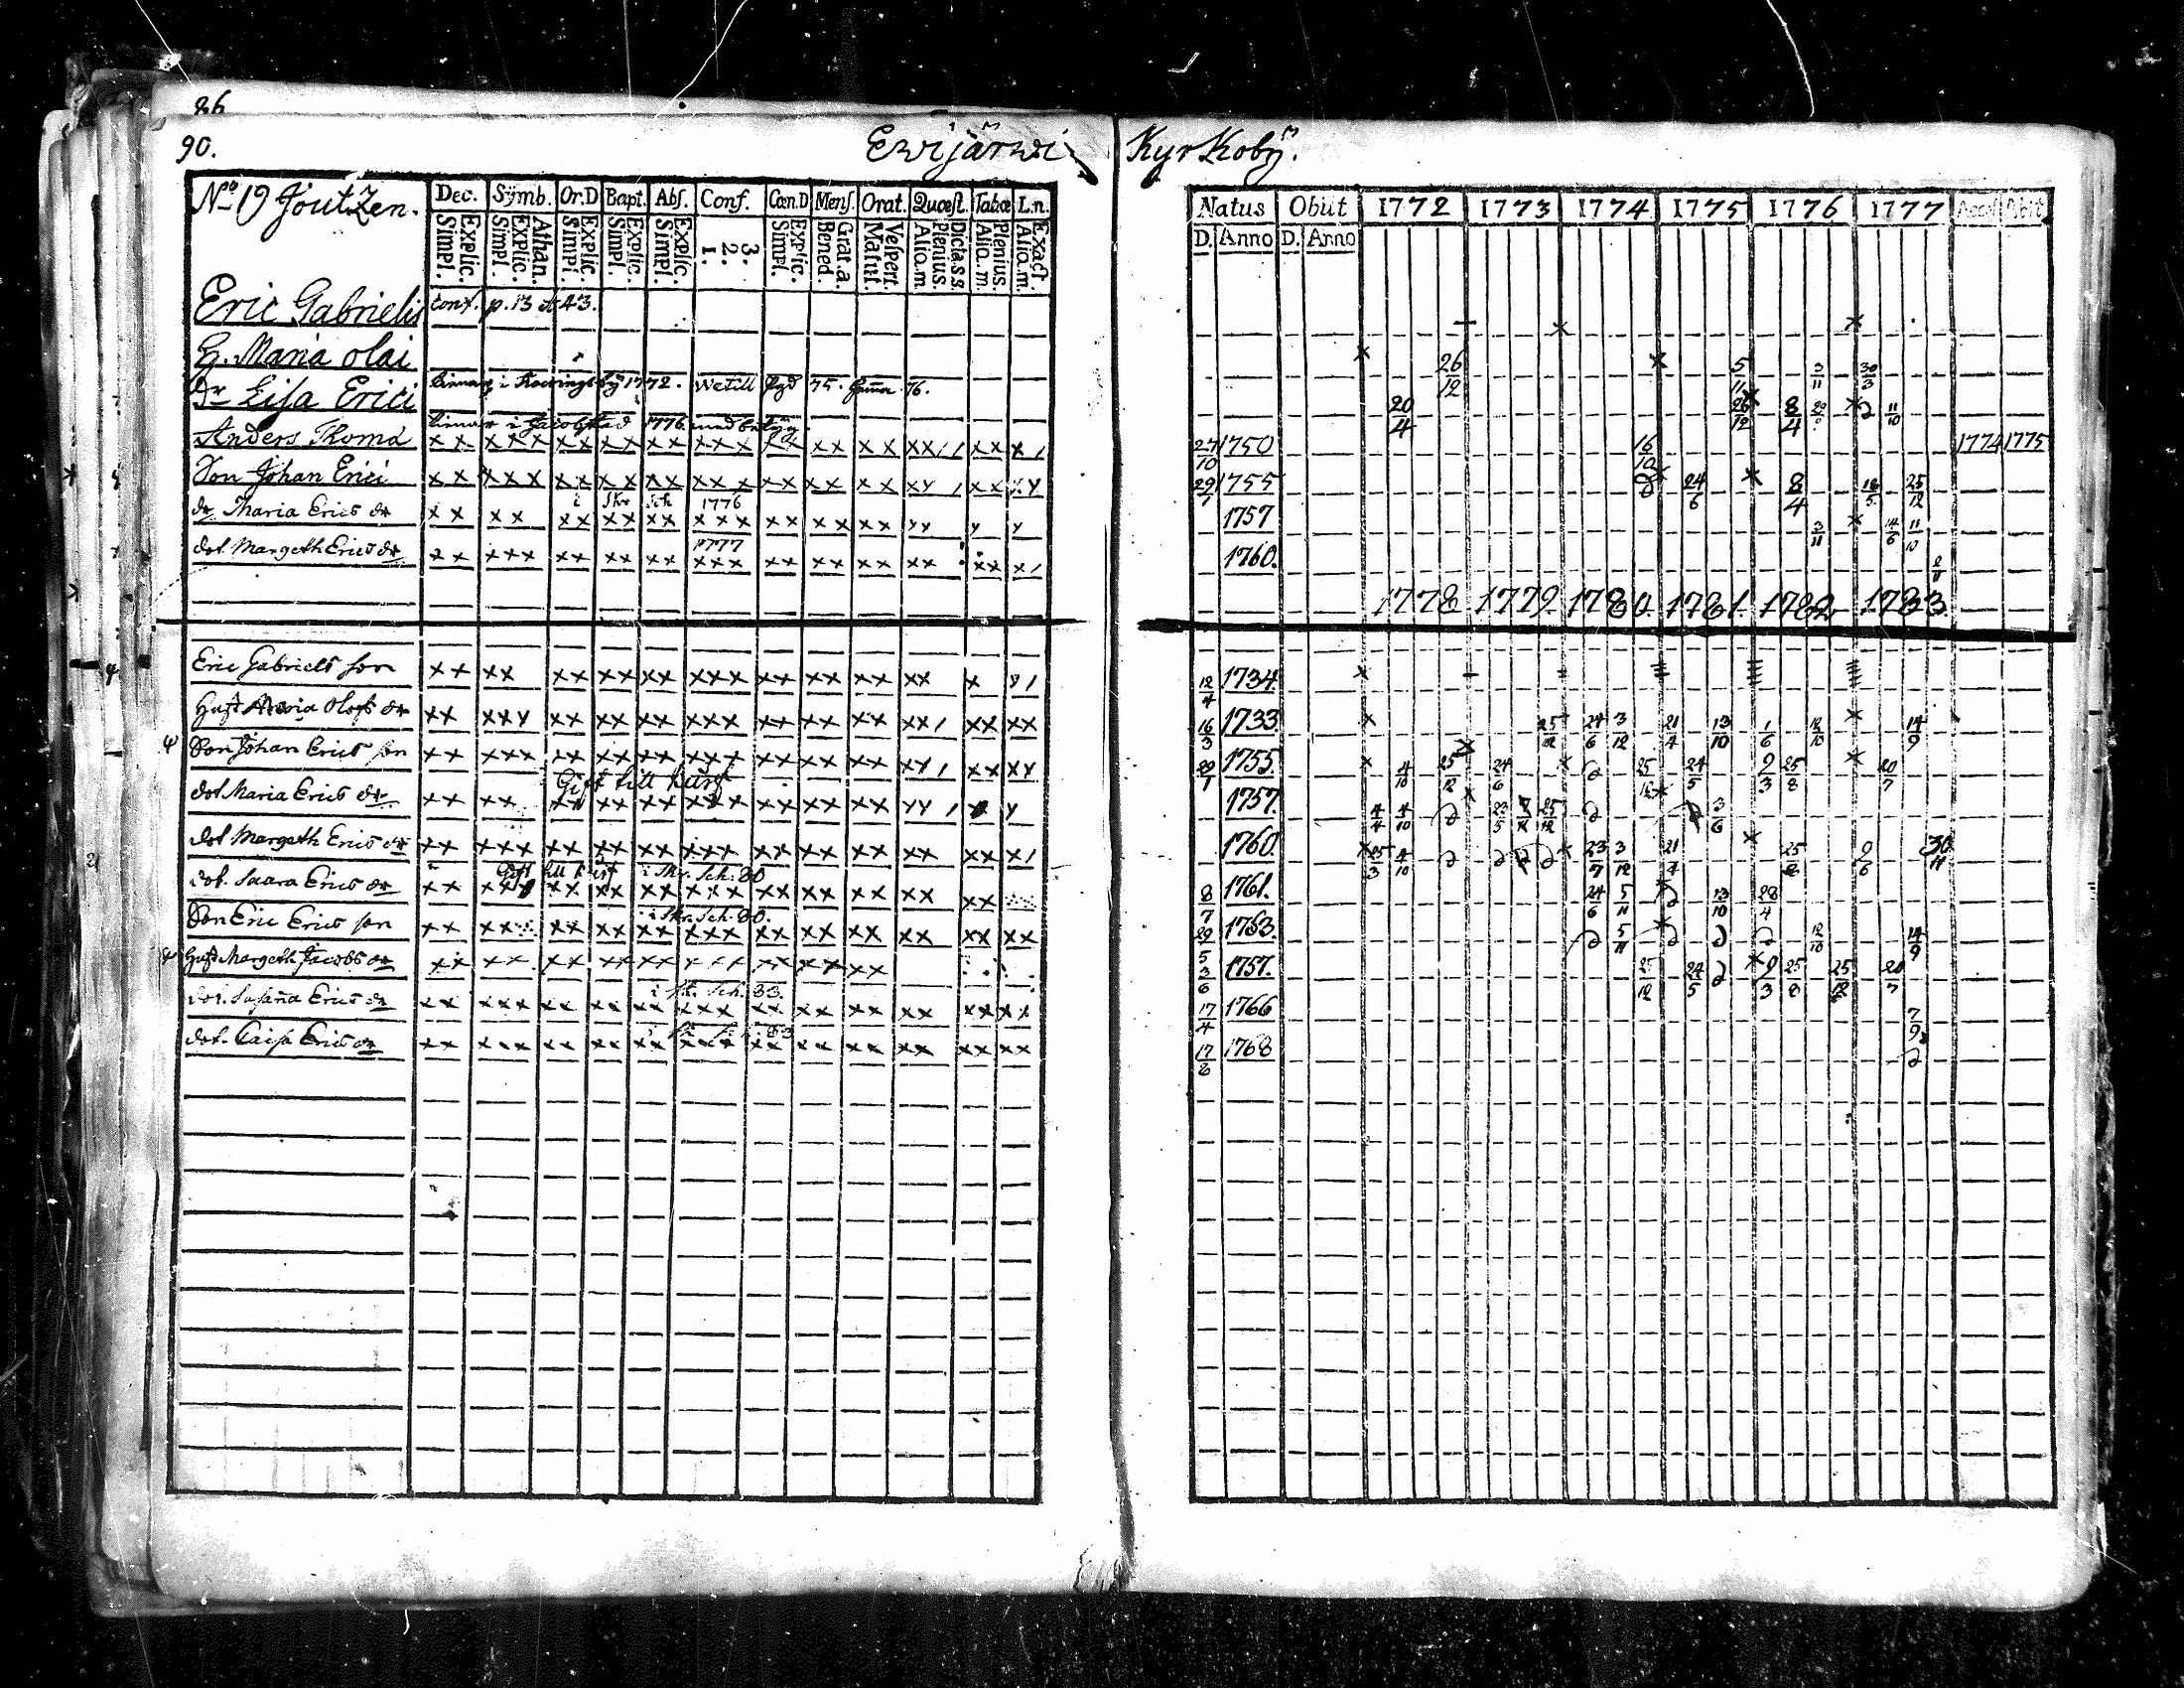 86
90.
Ewijärwi
Kyrkobÿ.
No 19 Joutzen.
Dec. Sÿmb. Or.D Bapt. Abs. Conf. Cœn.D Mens. Orat. Quæst. Tabæ L.n.
Explic. Simpl. Athan. Explic. Simpl. Explic. Simpl. Explic. Simpl. Explic. Simpl. 3. 2. 1. Explic. Simpl. Grat.a. Bened. Vespert. Matut. Dicta.s.s. Plenius. Aliq.m. Plenius. Aliq.m. Exact. Aliq.m.
Natus Obiit 1772 1773 1774 1775 1776 1777 Abit
D. Anno D. Anno
Eric Gabrielis conf. p. 13 & 43.
H. Maria olai
Dr Lisa Erici
Anders Thomæ
27/10 1750 16/10 1774 1775
Son Johan Erici
29/1 1755 24/6 8/4 25/12
i Skr Sch 1776
dr Maria Erics dr
1757 3/11 14/6 11/10
1777
dot. Margeth Erics dr
1760.
1778 1779. 1780. 1781. 1782 1783.
Eric Gabriels son
12/4 1734.
Hust Maria Olofs dr
16/3 1733 25/12 24/6 3/12 21/4 13/10 1/6 12/10 14/9
Son Johan Erics son
29/1 1755. 4/10 25/12 24/6 25/12 24/5 9/3 25/8 20/7
Gift till
dot Maria Erics dr
1757. 4/4 4/10 23/5 25/12 3/6
dot Margeth Erics dr
1760. 25/3 4/10 23/7 3/12 21/4 9/6 30/11
Gift till i Skr. Sch. 80
dot. Saara Erics dr
8/7 1761. 24/6 5/11 13/10 28/4
i Skr. Sch. 80.
Son Eric Erics son
29/5 1763. 5/11 12/10 14/9
Hust Margeth Jacobs dr
3/6 1757. 25/12 24/5 9/3 25/8 25/12 20/7
i Sk. Sch. 83.
dot. Susaña Erics dr
17/4 1766 7/9
dot. Caisa Erics dr
1768